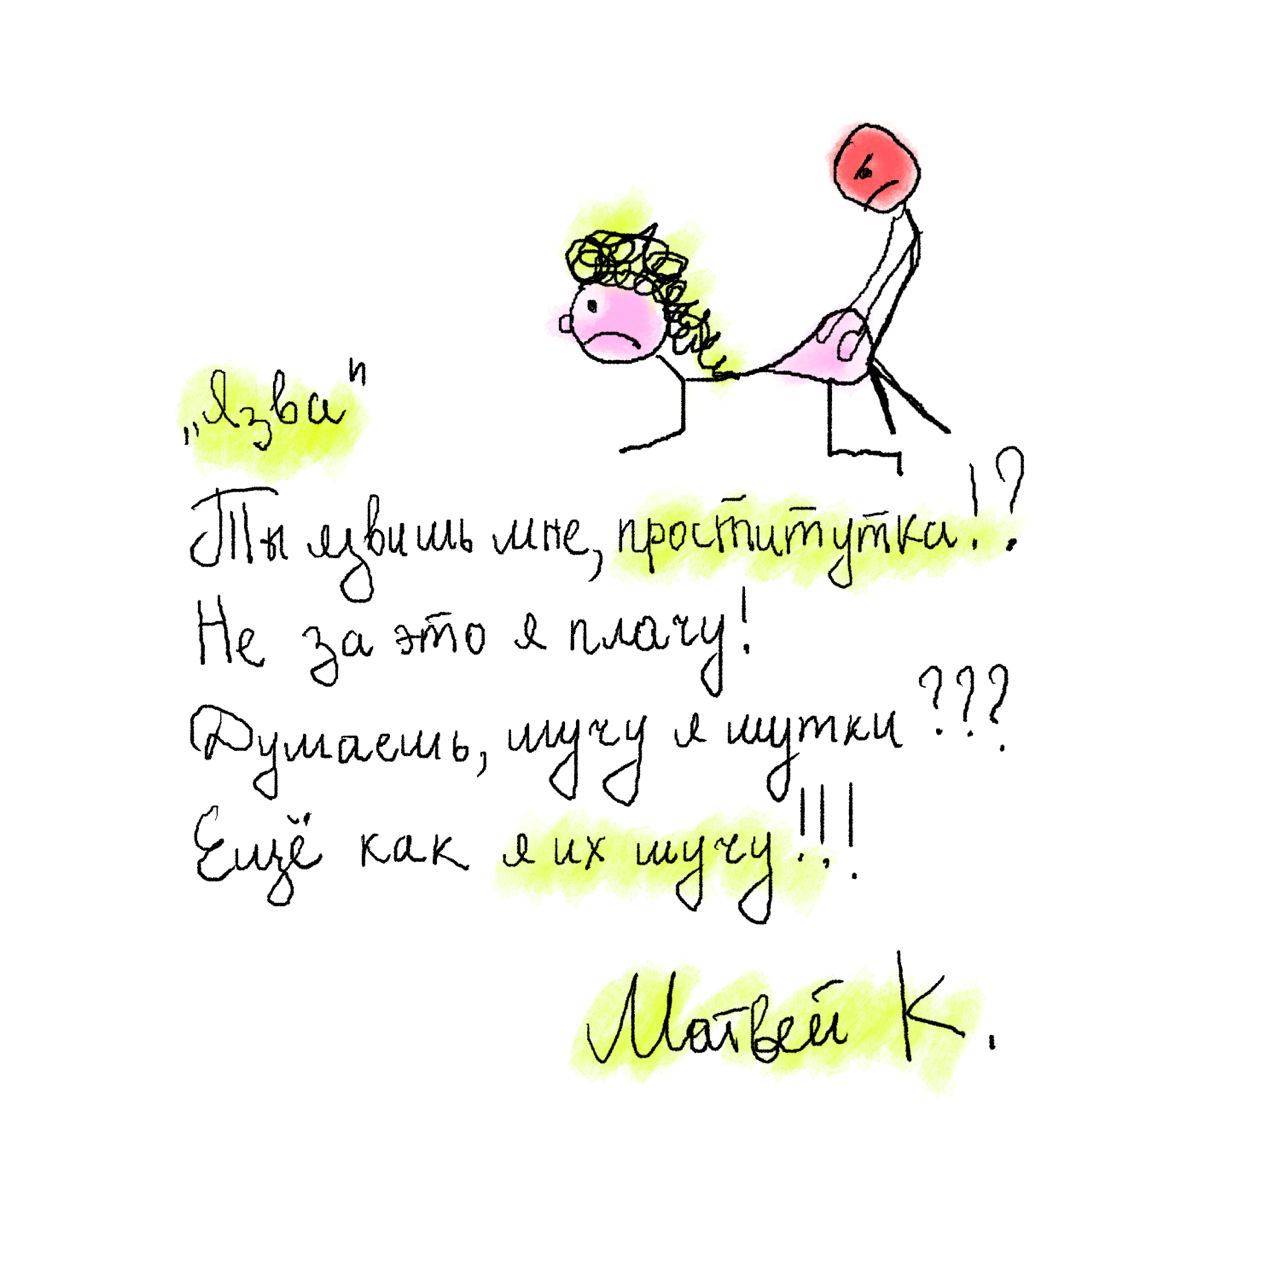 „Язва"
Ты язвишь мне, проститутка!?
Не за это я плачу!
Думаешь, шучу я шутки???
Ещё как я их шучу!!!
Матвей К.